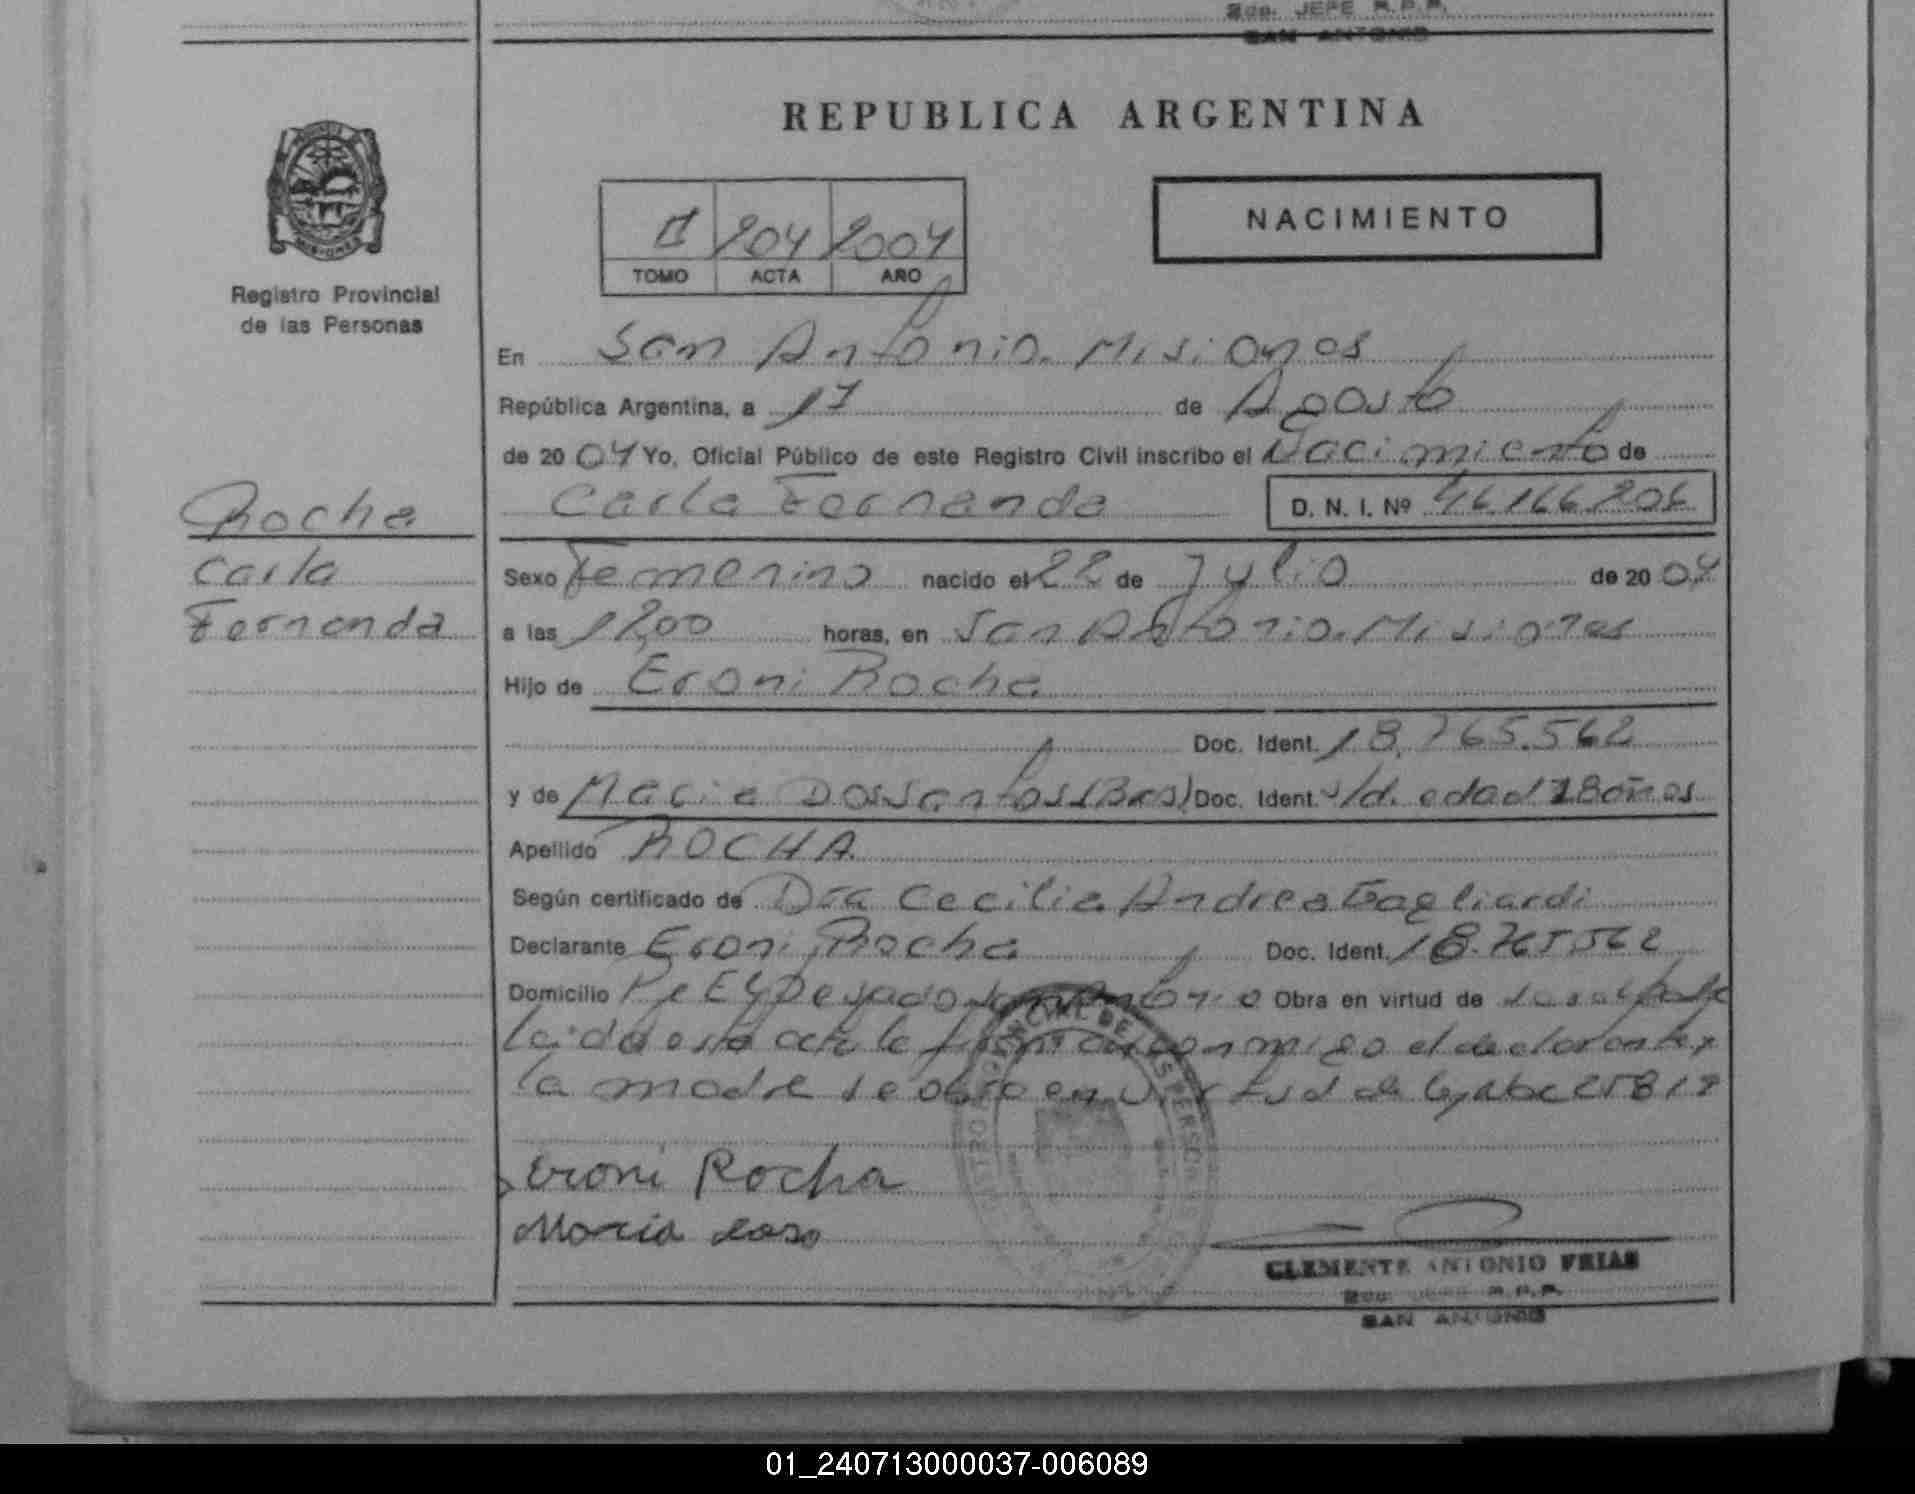 Sub. JEFE R.P.P.
SAN ANTONIO
REPUBLICA ARGENTINA
NACIMIENTO
II 204 2004
TOMO ACTA AÑO
Registro Provincial
de las Personas
En San Antonio. Misiones
República Argentina, a 17 de Agosto
de 2004 Yo, Oficial Público de este Registro Civil inscribo el Nacimiento de
Carla Fernanda D. N. I. Nº 46.166.206
Rocha
Carla
Fernanda
Sexo Femenino nacido el 22 de Julio de 2004
a las 12,00 horas, en San Antonio. Misiones
Hijo de Eroni Rocha
Doc. Ident. 18.765.562
y de Maria Dossantos (Bras) Doc. Ident. s/d. edad 18 años
Apellido ROCHA
Según certificado de Dra Cecilia Andrea Gagliardi
Declarante Eroni Rocha Doc. Ident. 18.765.562
Domicilio Pje El Pesado San Antonio Obra en virtud de
Leida esta acta la firman conmigo el declarante y
la madre se obro en virtud de ley nac 25819
Eroni Rocha
Maria
CLEMENTE ANTONIO FRIAS
Sub. JEFE R.P.P.
SAN ANTONIO
01_240713000037-006089